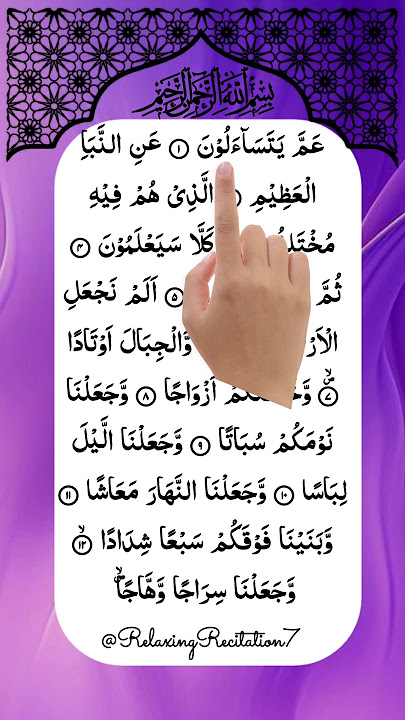 بِسْمِ اللهِ الرَّحْمٰنِ الرَّحِيْمِ
عَمَّ يَتَسَآءَلُوْنَ ۝١ عَنِ النَّبَاِ
الْعَظِيْمِ الَّذِیْ هُمْ فِيْهِ
كَلَّا سَيَعْلَمُوْنَ ۝٤
ثُمَّ ۝٥ اَلَمْ نَجْعَلِ
وَّالْجِبَالَ اَوْتَادًا
۝٧ اَزْوَاجًا ۝٨ وَّجَعَلْنَا
نَوْمَكُمْ سُبَاتًا ۝٩ وَّجَعَلْنَا الَّيْلَ
لِبَاسًا ۝١٠ وَّجَعَلْنَا النَّهَارَ مَعَاشًا ۝١١
وَّبَنَيْنَا فَوْقَكُمْ سَبْعًا شِدَادًا ۝١٢
وَّجَعَلْنَا سِرَاجًا وَّهَّاجًا
@RelaxingRecitation7